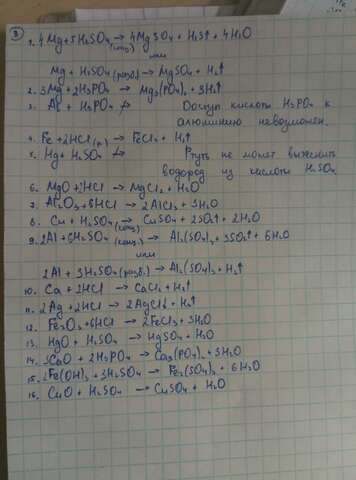 ③
1. 4Mg + 5H₂SO₄ (конц.) → 4MgSO₄ + H₂S↑ + 4H₂O
или
Mg + H₂SO₄ (разб.) → MgSO₄ + H₂↑
2. 3Mg + 2H₃PO₄ → Mg₃(PO₄)₂ + 3H₂↑
3. Al + H₃PO₄ ↛ Доступ кислоты H₃PO₄ к
алюминию невозможен.
4. Fe + 2HCl (р.) → FeCl₂ + H₂↑
5. Hg + H₂SO₄ ↛ Ртуть не может вытеснить
водород из кислоты H₂SO₄
6. MgO + 2HCl → MgCl₂ + H₂O
7. Al₂O₃ + 6HCl → 2AlCl₃ + 3H₂O
8. Cu + H₂SO₄ (конц.) → CuSO₄ + 2SO₂↑ + 2H₂O
9. 2Al + 6H₂SO₄ (конц.) → Al₂(SO₄)₃ + 3SO₂↑ + 6H₂O
или
2Al + 3H₂SO₄ (разб.) → Al₂(SO₄)₃ + H₂↑
10. Ca + 2HCl → CaCl₂ + H₂↑
11. 2Ag + 2HCl → 2AgCl↓ + H₂↑
12. Fe₂O₃ + 6HCl → 2FeCl₃ + 3H₂O
13. HgO + H₂SO₄ → HgSO₄ + H₂O
14. 3CaO + 2H₃PO₄ → Ca₃(PO₄)₂ + 3H₂O
15. 2Fe(OH)₃ + 3H₂SO₄ → Fe₂(SO₄)₃ + 6H₂O
16. CuO + H₂SO₄ → CuSO₄ + H₂O